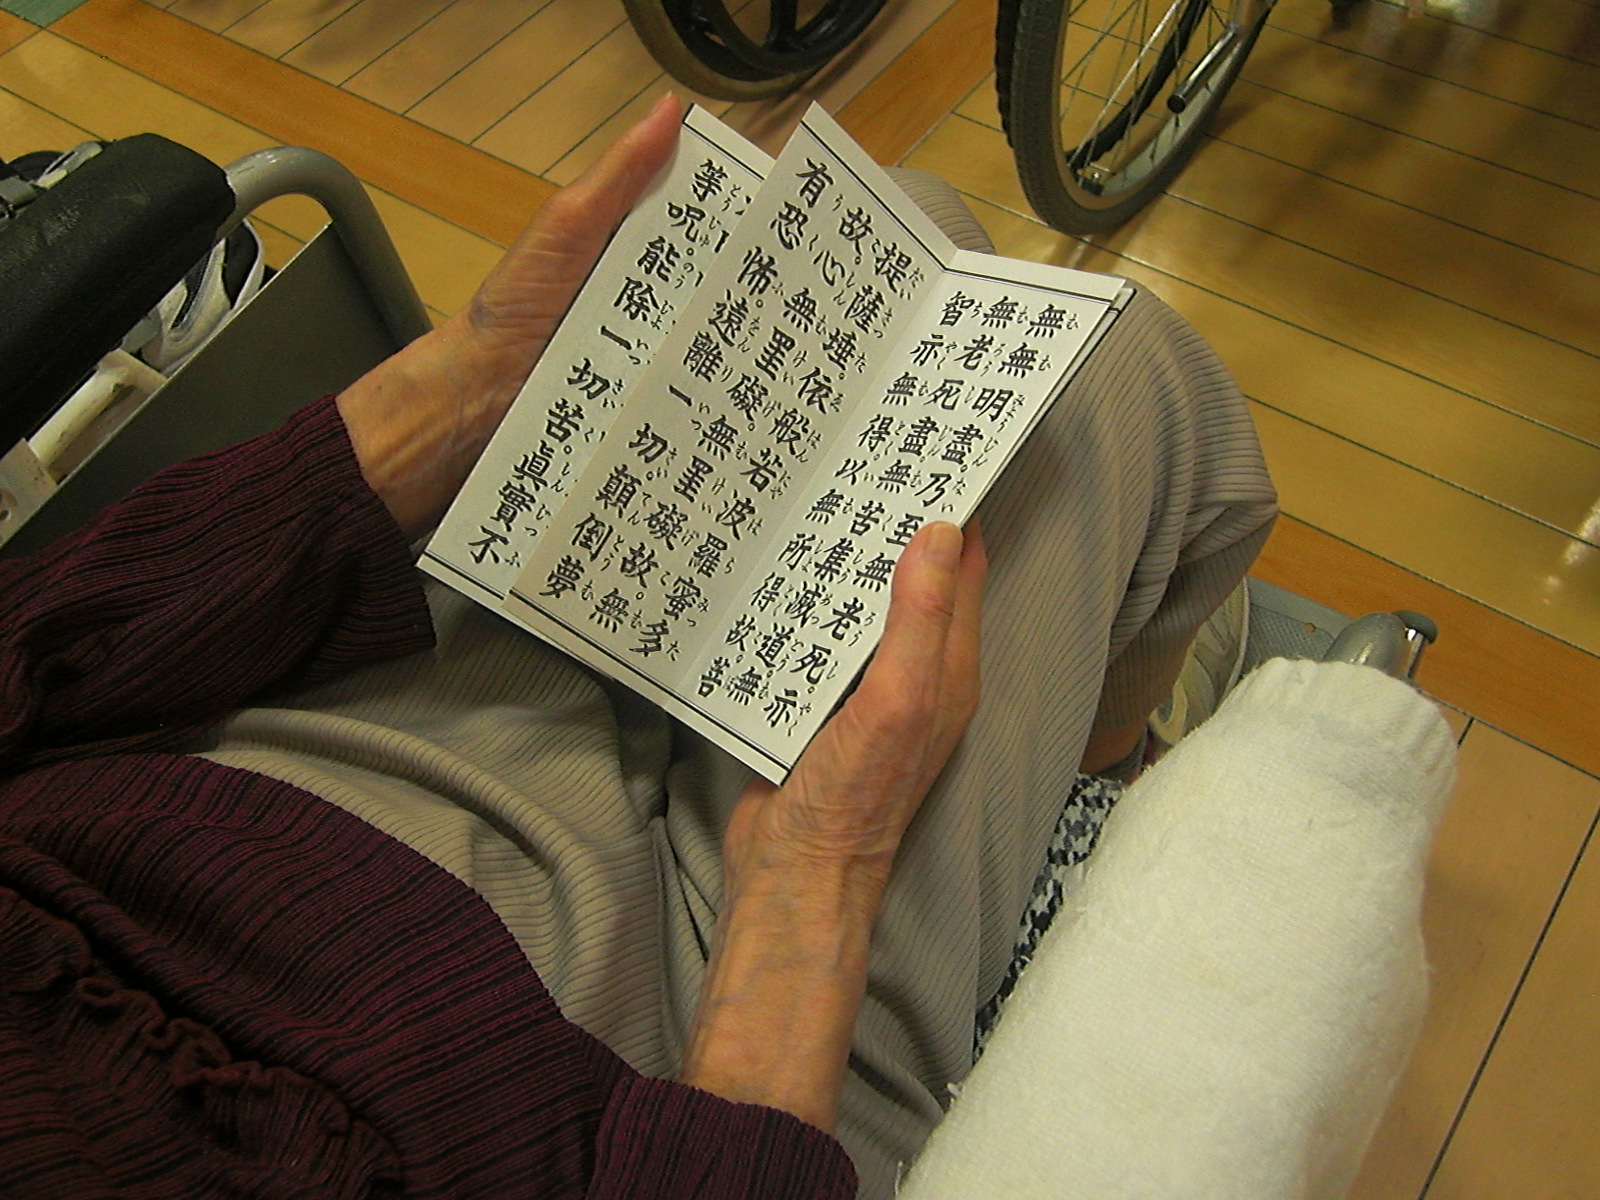 無無明盡。乃至無老死。亦
無老死盡。無苦集滅道。無
智亦無得。以無所得故。菩
提薩埵。依般若波羅蜜多
故。心無罣礙。無罣礙故。無
有恐怖。遠離一切。顛倒夢
等呪。能除一切苦。眞實不